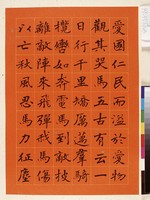 愛國仁民而溢於愛物
觀其哭馬五古有云一
日行千里矯厲蓋羣騎
攬轡如奔電馬到敵披
離敵陣來飛彈我馬傷
以亡秋風忍馬力征塵